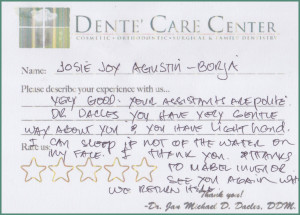 DENTE' CARE CENTER
COSMETIC • ORTHODONTIC • SURGICAL & FAMILY DENTISTRY
Name: JOSIE JOY AGUSTIN-BORJA
Please describe your experience with us...
VERY GOOD. YOUR ASSISTANTS ARE POLITE.
DR. DACLES YOU HAVE VERY GENTLE
WAY ABOUT YOU & YOU HAVE LIGHT HAND.
I CAN SLEEP IF NOT OF THE WATER ON
Rate us:
MY FACE. I THANK YOU. THANKS
TO MABEL
SEE YOU AGAIN
WE RETURN
Thank you!
-Dr. Jan Michael D. Dacles, DDM.